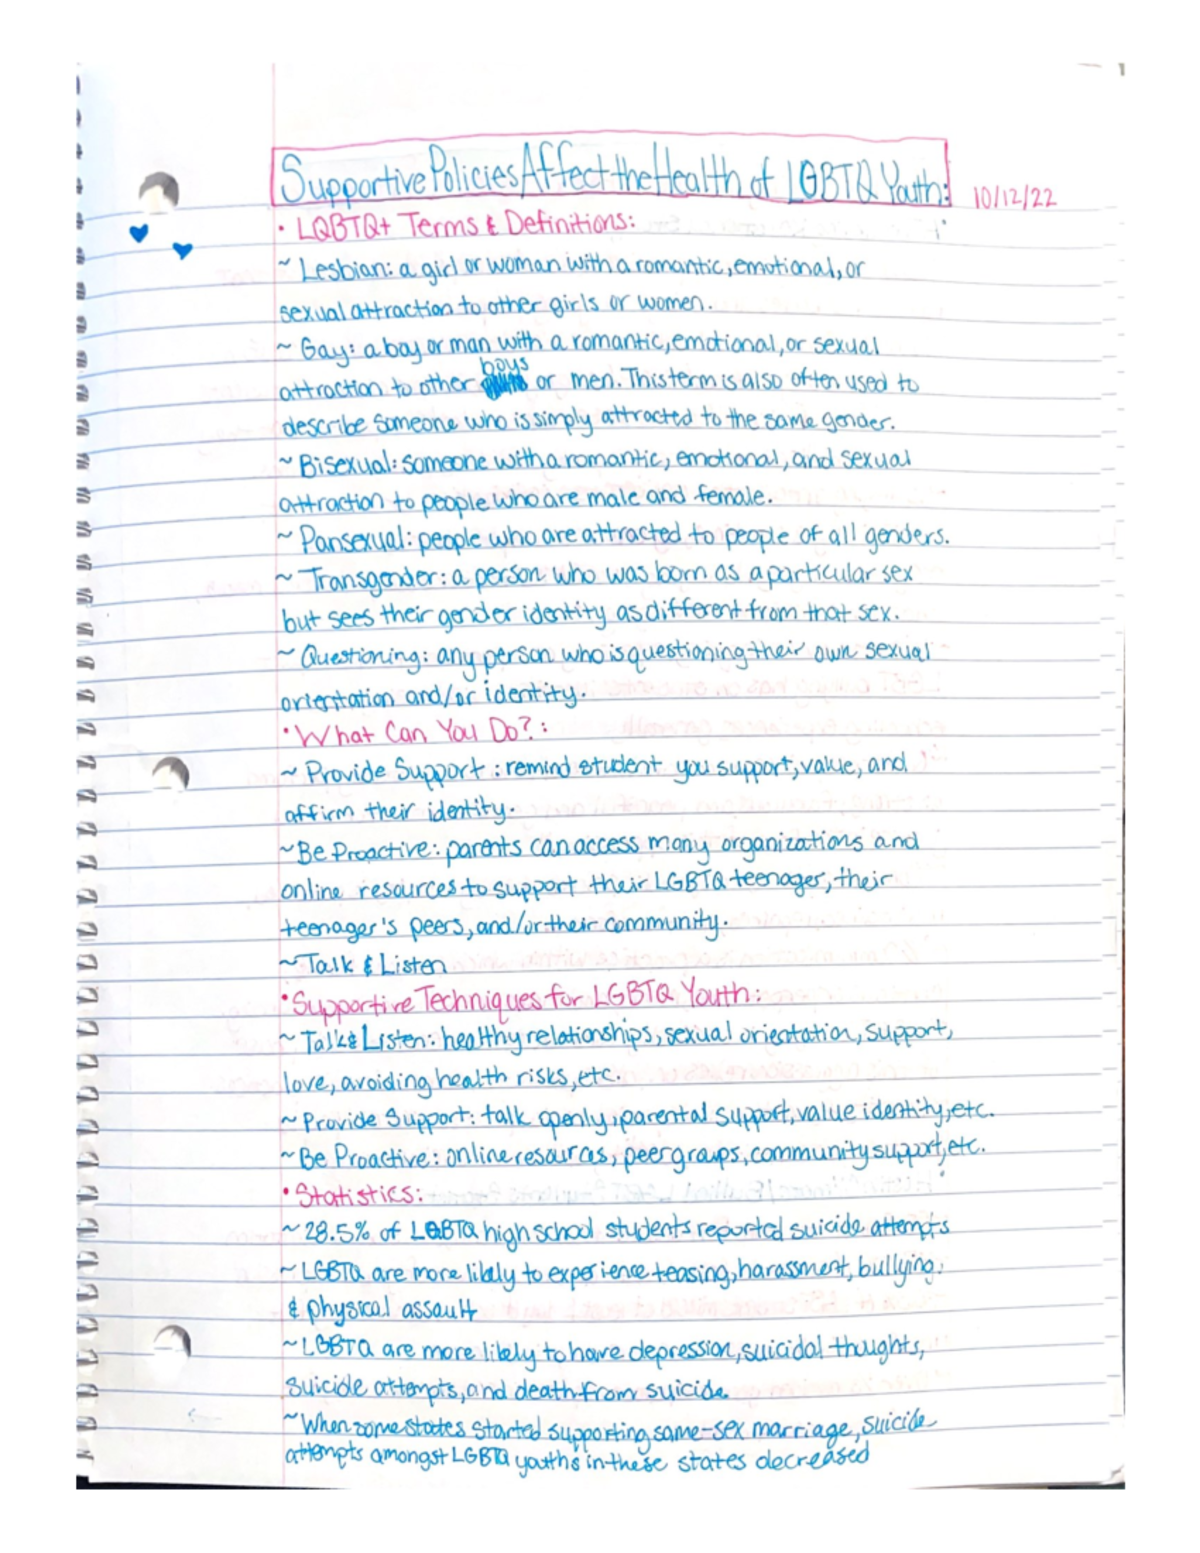 Supportive Policies Affect the Health of LGBTQ Youth: 10/12/22
• LQBTQ+ Terms & Definitions:
~ Lesbian: a girl or woman with a romantic, emotional, or
sexual attraction to other girls or women.
~ Gay: a boy or man with a romantic, emotional, or sexual
boys
attraction to other or men. This term is also often used to
describe someone who is simply attracted to the same gender.
~ Bisexual: someone with a romantic, emotional, and sexual
attraction to people who are male and female.
~ Pansexual: people who are attracted to people of all genders.
~ Transgender: a person who was born as a particular sex
but sees their gender identity as different from that sex.
~ Questioning: any person who is questioning their own sexual
orientation and/or identity.
• What Can You Do?:
~ Provide Support: remind student you support, value, and
affirm their identity.
~ Be Proactive: parents can access many organizations and
online resources to support their LGBTQ teenager, their
teenager's peers, and/or their community.
~ Talk & Listen
• Supportive Techniques for LGBTQ Youth:
~ Talk & Listen: healthy relationships, sexual orientation, support,
love, avoiding health risks, etc.
~ Provide Support: talk openly, parental support, value identity, etc.
~ Be Proactive: online resources, peer groups, community support, etc.
• Statistics:
~ 28.5% of LGBTQ high school students reported suicide attempts
~ LGBTQ are more likely to experience teasing, harassment, bullying,
& physical assault
~ LGBTQ are more likely to have depression, suicidal thoughts,
suicide attempts, and death from suicide
~ When some states started supporting same-sex marriage, suicide
attempts amongst LGBTQ youths in these states decreased